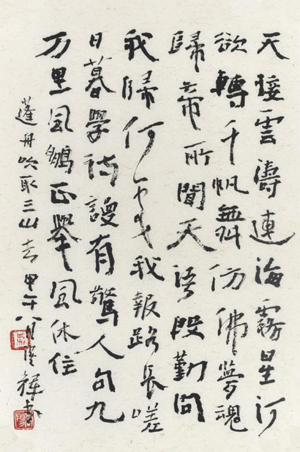 天接雲濤連海霧星河
欲轉千帆舞仿佛夢魂
歸帝所聞天語殷勤問
我歸何處我報路長嗟
日暮學詩謾有驚人句九
万里風鵬正舉風休住
蓬舟吹取三山去 甲午八月